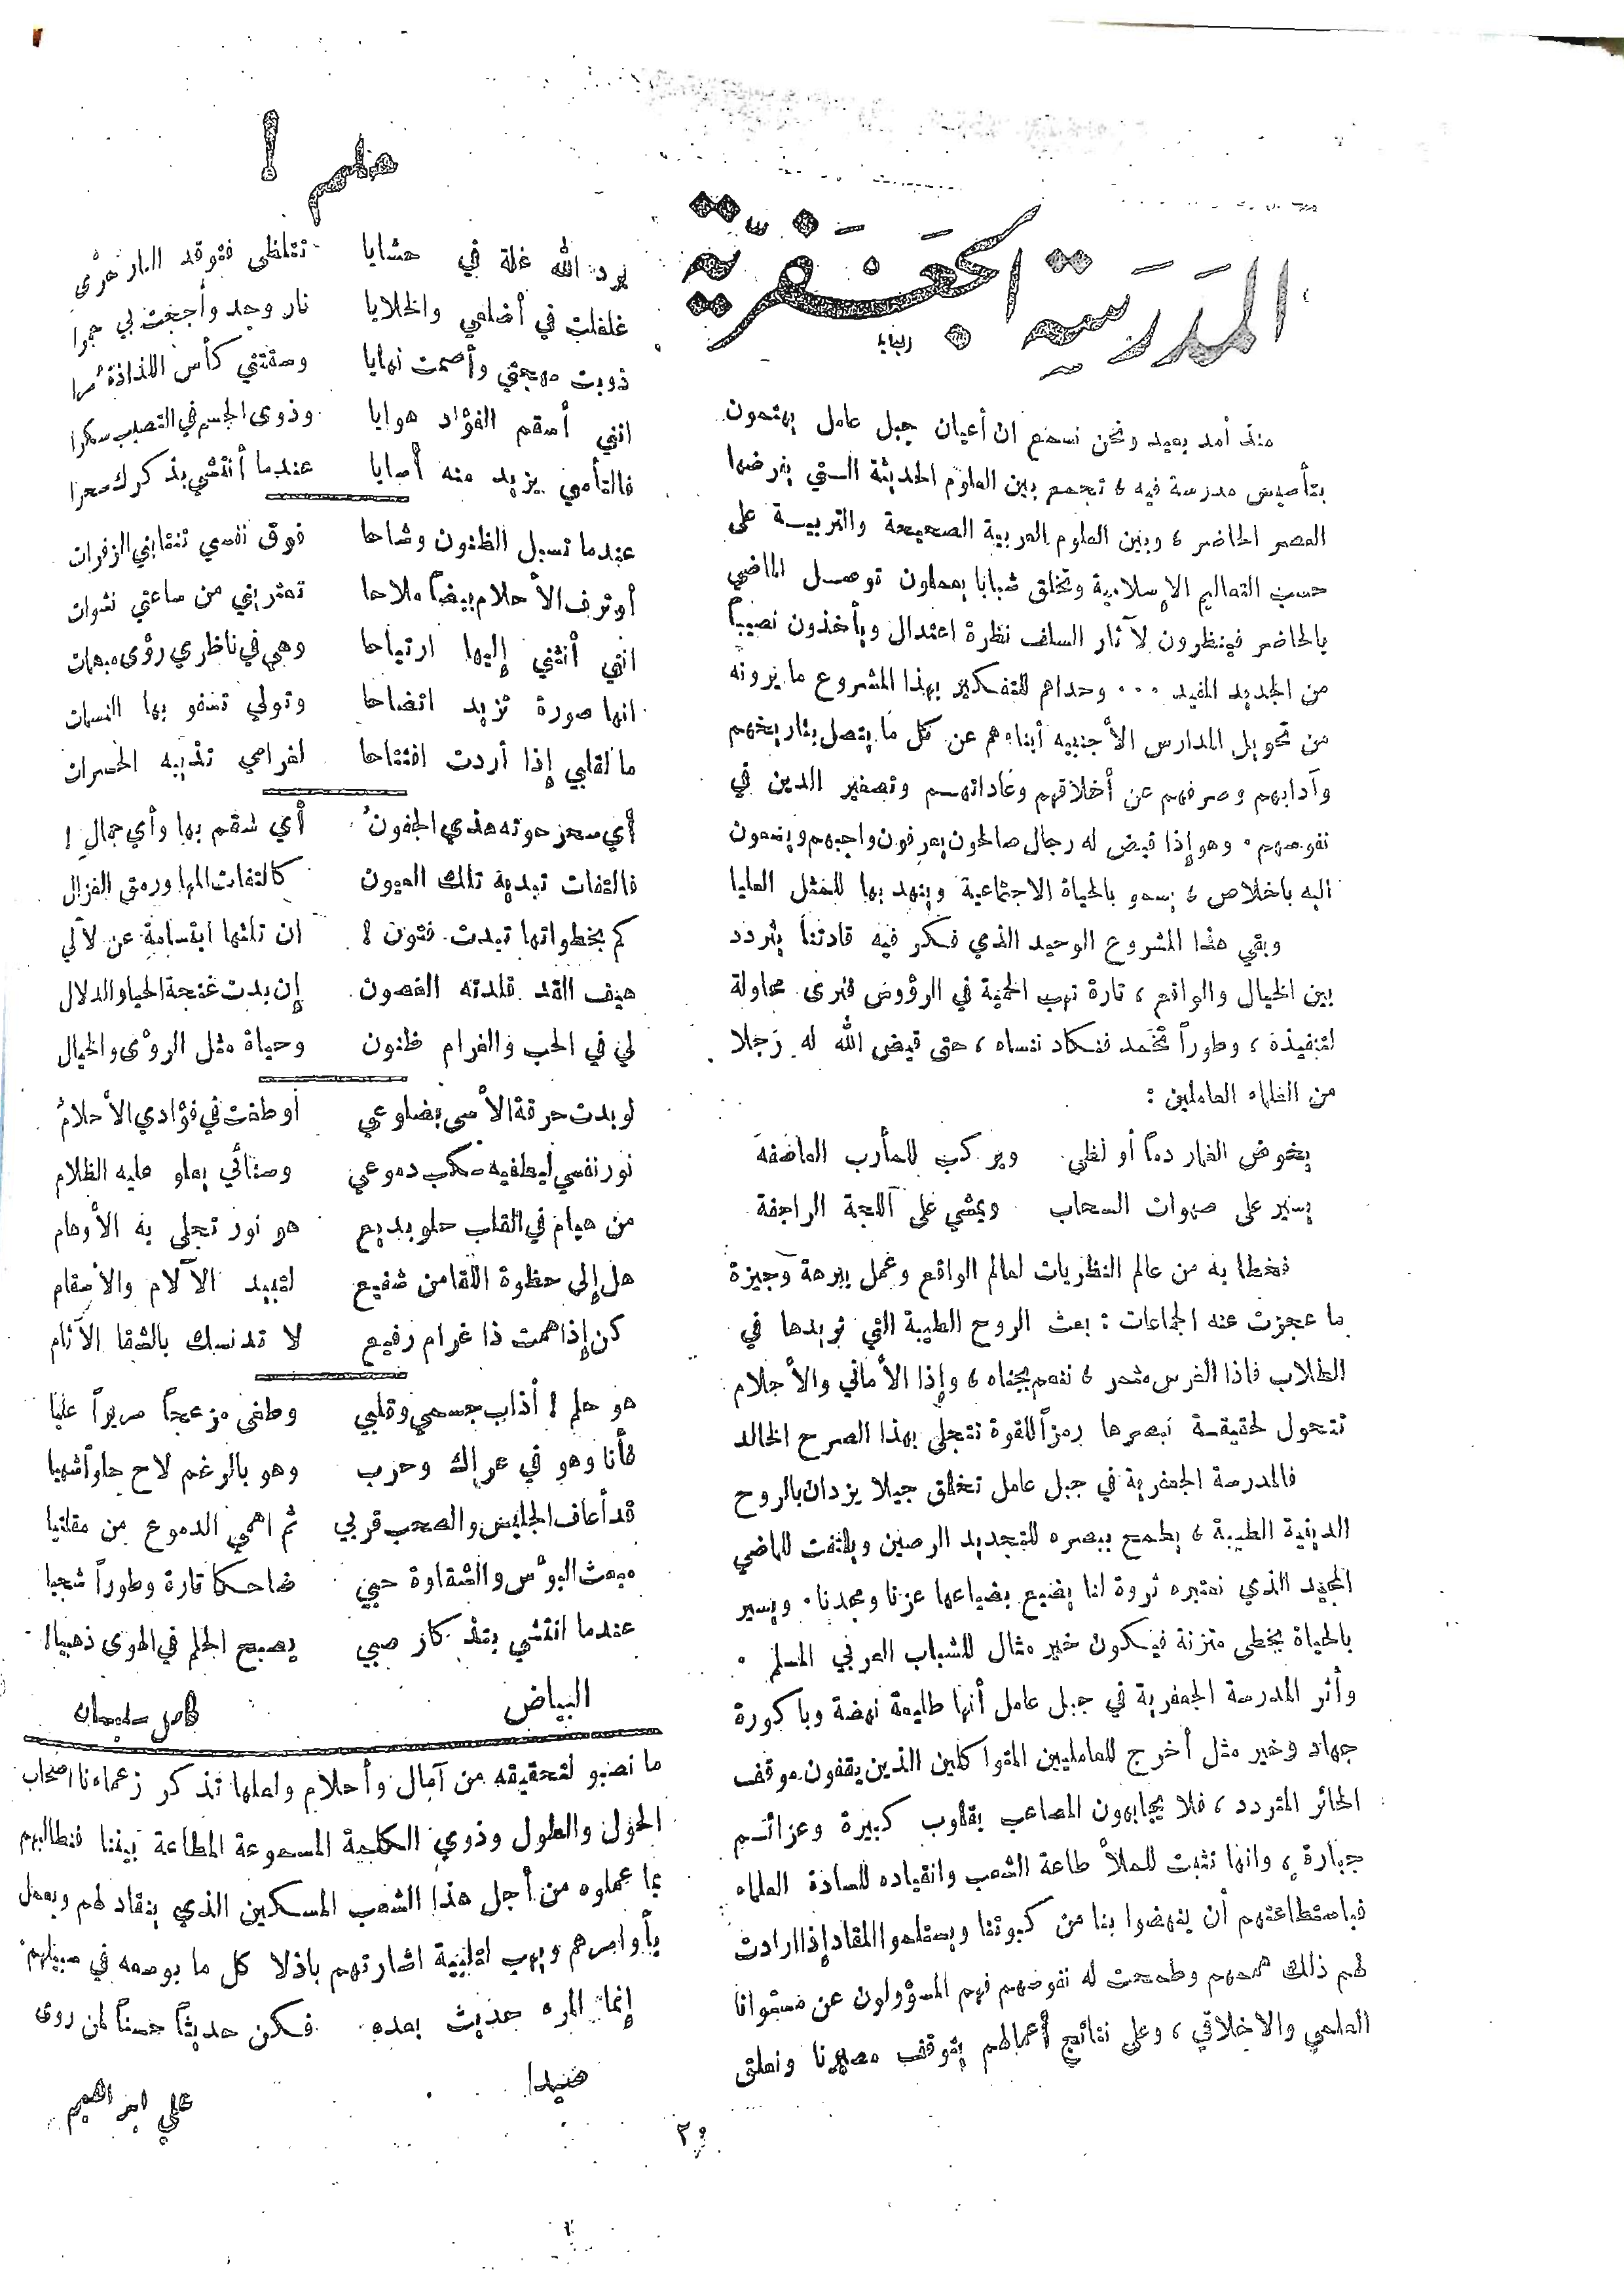 المدرسة الجعفرية
منذ أمد بعيد ونحن نسمع ان أعيان جبل عامل يهتمون
بتأسيس مدرسة فيه ، تجمع بين العلوم الحديثة التي يفرضها
العصر الحاضر ، وبين العلوم العربية الصحيحة والتربية على
حسب التعاليم الإسلامية وتخلق شبابا يعملون توصل الماضي
بالحاضر فينظرون لآثار السلف نظرة اعتدال ويأخذون نصيباً
من الجديد المفيد ... وحداهم للتفكير بهذا المشروع ما يرونه
من تحويل المدارس الأجنبيه أبناءهم عن كل ما يتصل بتاريخهم
وآدابهم وصرفهم عن أخلاقهم وعاداتهم وتصغير الدين في
نفوسهم . وهو إذا قيض له رجال صالحون يعرفون واجبهم ويضعون
اليه باخلاص ، يسمو بالحياة الاجتماعية وينهد بها للمثل العليا
وبقي هذا المشروع الوحيد الذي فكر فيه قادتنا يتردد
بين الخيال والواقع ، تارة تهب الحمية في الرؤوس فنرى محاولة
لتنفيذه ، وطوراً تخمد فنكاد ننساه ، حتى قيض الله له رجلا
من العلماء العاملين :
يخوض الغمار دماً أو لظى ويركب للمأرب العاصفة
يسير على صهوات السحاب ويمشي على اللجة الراجفة
فخطا به من عالم النظريات لعالم الواقع وعمل ببرهة وجيزة
ما عجزت عنه الجماعات : بعث الروح الطيبة التي نريدها في
الطلاب فاذا الغرس مثمر ، ننعم بجناه ، وإذا الأماني والأحلام
تتحول لحقيقة نبصرها رمزاً للقوة تتجلى بهذا الصرح الخالد
فالمدرسة الجعفرية في جبل عامل تخلق جيلا يزدان بالروح
الدينية الطيبة ، يطمح ببصره للتجديد الرصين ويلتفت للماضي
المجيد الذي نعتبره ثروة لنا يضيع بضياعها عزنا ومجدنا . ويسير
بالحياة بخطى متزنة فيكون خير مثال للشباب العربي المسلم .
وأثر المدرسة الجعفرية في جبل عامل أنها طليعة نهضة وباكورة
جهاد وخير مثل أخرج للعامليين المتواكلين الذين يقفون موقف
الحائر المتردد ، فلا يجابهون المصاعب بقلوب كبيرة وعزائم
جبارة ، وانها تثبت للملأ طاعة الشعب وانقياده للسادة العلماء
فباستطاعتهم أن ينهضوا بنا من كبوتنا ويستلموا المقاد إذا ارادت
لهم ذلك هممهم وطمحت له نفوسهم فهم المسؤولون عن مستوانا
العلمي والاخلاقي ، وعلى نتائج أعمالهم يتوقف مصيرنا ونعلق
حلم !
برد الله غلة في حشايا تتلظى فتوقد النار حرى
غلغلت في أضلعي والخلايا نار وجد وأججت بي جمرا
ذوبت مهجتي وأصمت نهايا وسقتني كأس اللذاذة مرا
انني أسقم الفؤاد هوايا وذوى الجسم في التصبب سكرا
فالتأسي يزيد منه أسايا عندما أنتشي بذكرك سحرا
عندما تسبل الظنون وشاحا فوق نفسي تنتابني الزفرات
أو ترف الأحلام بيضاً ملاحا تعتريني من ساعتي نشوات
انني أنثني إليها ارتياحا وهي في ناظري رؤى مبهمات
انها صورة تزيد اتضاحا وتولي تهفو بها النسمات
ما لقلبي إذا أردت افتتاحا لغرامي تذيبه الحسرات
أي سحر حوته هذي الجفون أي سقم بها وأي جمال !
فالتفات تبديه تلك العيون كالتفات المها ورمق الغزال
كم بخطواتها تبدت فتون ! ان تلتها ابتسامة عن لآلي
هيف القد قلدته الغصون إن بدت غنجة الحيا والدلال
لي في الحب والغرام ظنون وحياة مثل الرؤى والخيال
لو بدت حرقة الأسى بضلوعي او طفت في فؤادي الأحلام
نور نفسي ليطفيه سكب دموعي وسنائي يعلو عليه الظلام
من هيام في القلب حلو بديع هو نور تجلى به الأوهام
هل إلى حظوة اللقا من شفيع لتبيد الآلام والأسقام
كن إذا همت ذا غرام رفيع لا تدنسك بالشقا الآثام
هو حلم ! أذاب جسمي وقلبي وطغى مزعجاً مريراً عليا
فأنا وهو في عراك وحرب وهو بالرغم لاح حلواً شهيا
قد أعاف الجليس والصحب قربي ثم اهمي الدموع من مقلتيا
مبعث البؤس والشقاوة حبي ضاحكا تارة وطوراً شجيا
عندما انتشي بتذكار صبي يصبح الحلم في الهوى ذهبيا !
البياض كامل سليمان
ما نصبو لتحقيقه من آمال وأحلام ولعلها تذكر زعماءنا اصحاب
الحول والطول وذوي الكلمة المسموعة المطاعة بيننا فنطالبهم
بما عملوه من أجل هذا الشعب المسكين الذي ينقاد لهم ويعمل
بأوامرهم ويهب لتلبية اشارتهم باذلا كل ما بوسعه في سبيلهم
إنما المرء حديث بعده فكن حديثاً حسناً لمن روى
علي ابراهيم